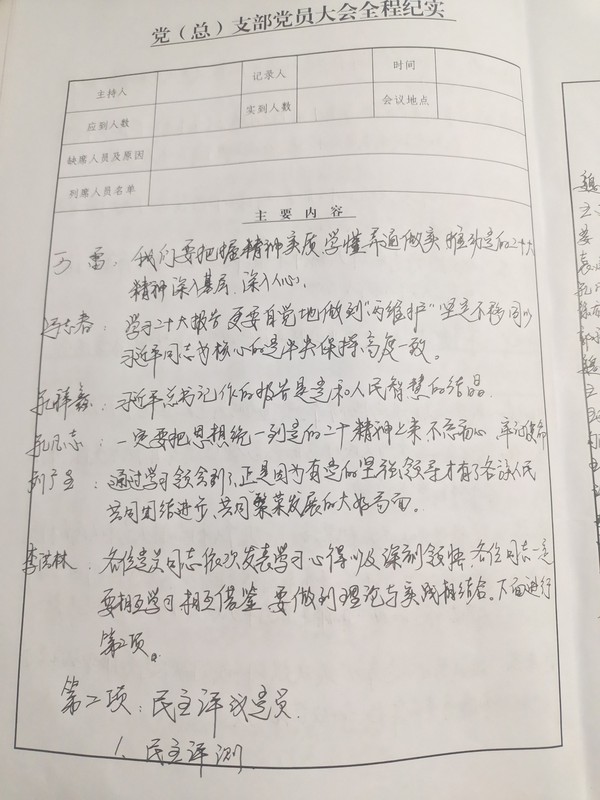 党（总）支部党员大会全程纪实
主持人 记录人 时间
应到人数 实到人数 会议地点
缺席人员及原因
列席人员名单
主要内容
雷：我们要把握精神实质学懂弄通做实推动党的二十大
精神深入基层、深入人心。
冯志春：学习二十大报告更要自觉地做到“两维护”坚定不移同以
习近平同志为核心的党中央保持高度一致。
祥鑫：习近平总书记作的报告是党和人民智慧的结晶
凡志：一定要把思想统一到党的二十精神上来不忘初心 牢记使命
刘广玉：通过学习领会到了，正是因为有党的坚强领导才有了各族人民
共同团结进步、共同繁荣发展的大好局面。
李洪林：各位党员同志依次发表学习心得以及深刻领悟，各位同志一定
要相互学习相互借鉴 要做到理论与实践相结合。下面进行
第二项。
第二项：民主评议党员.
1、民主评测